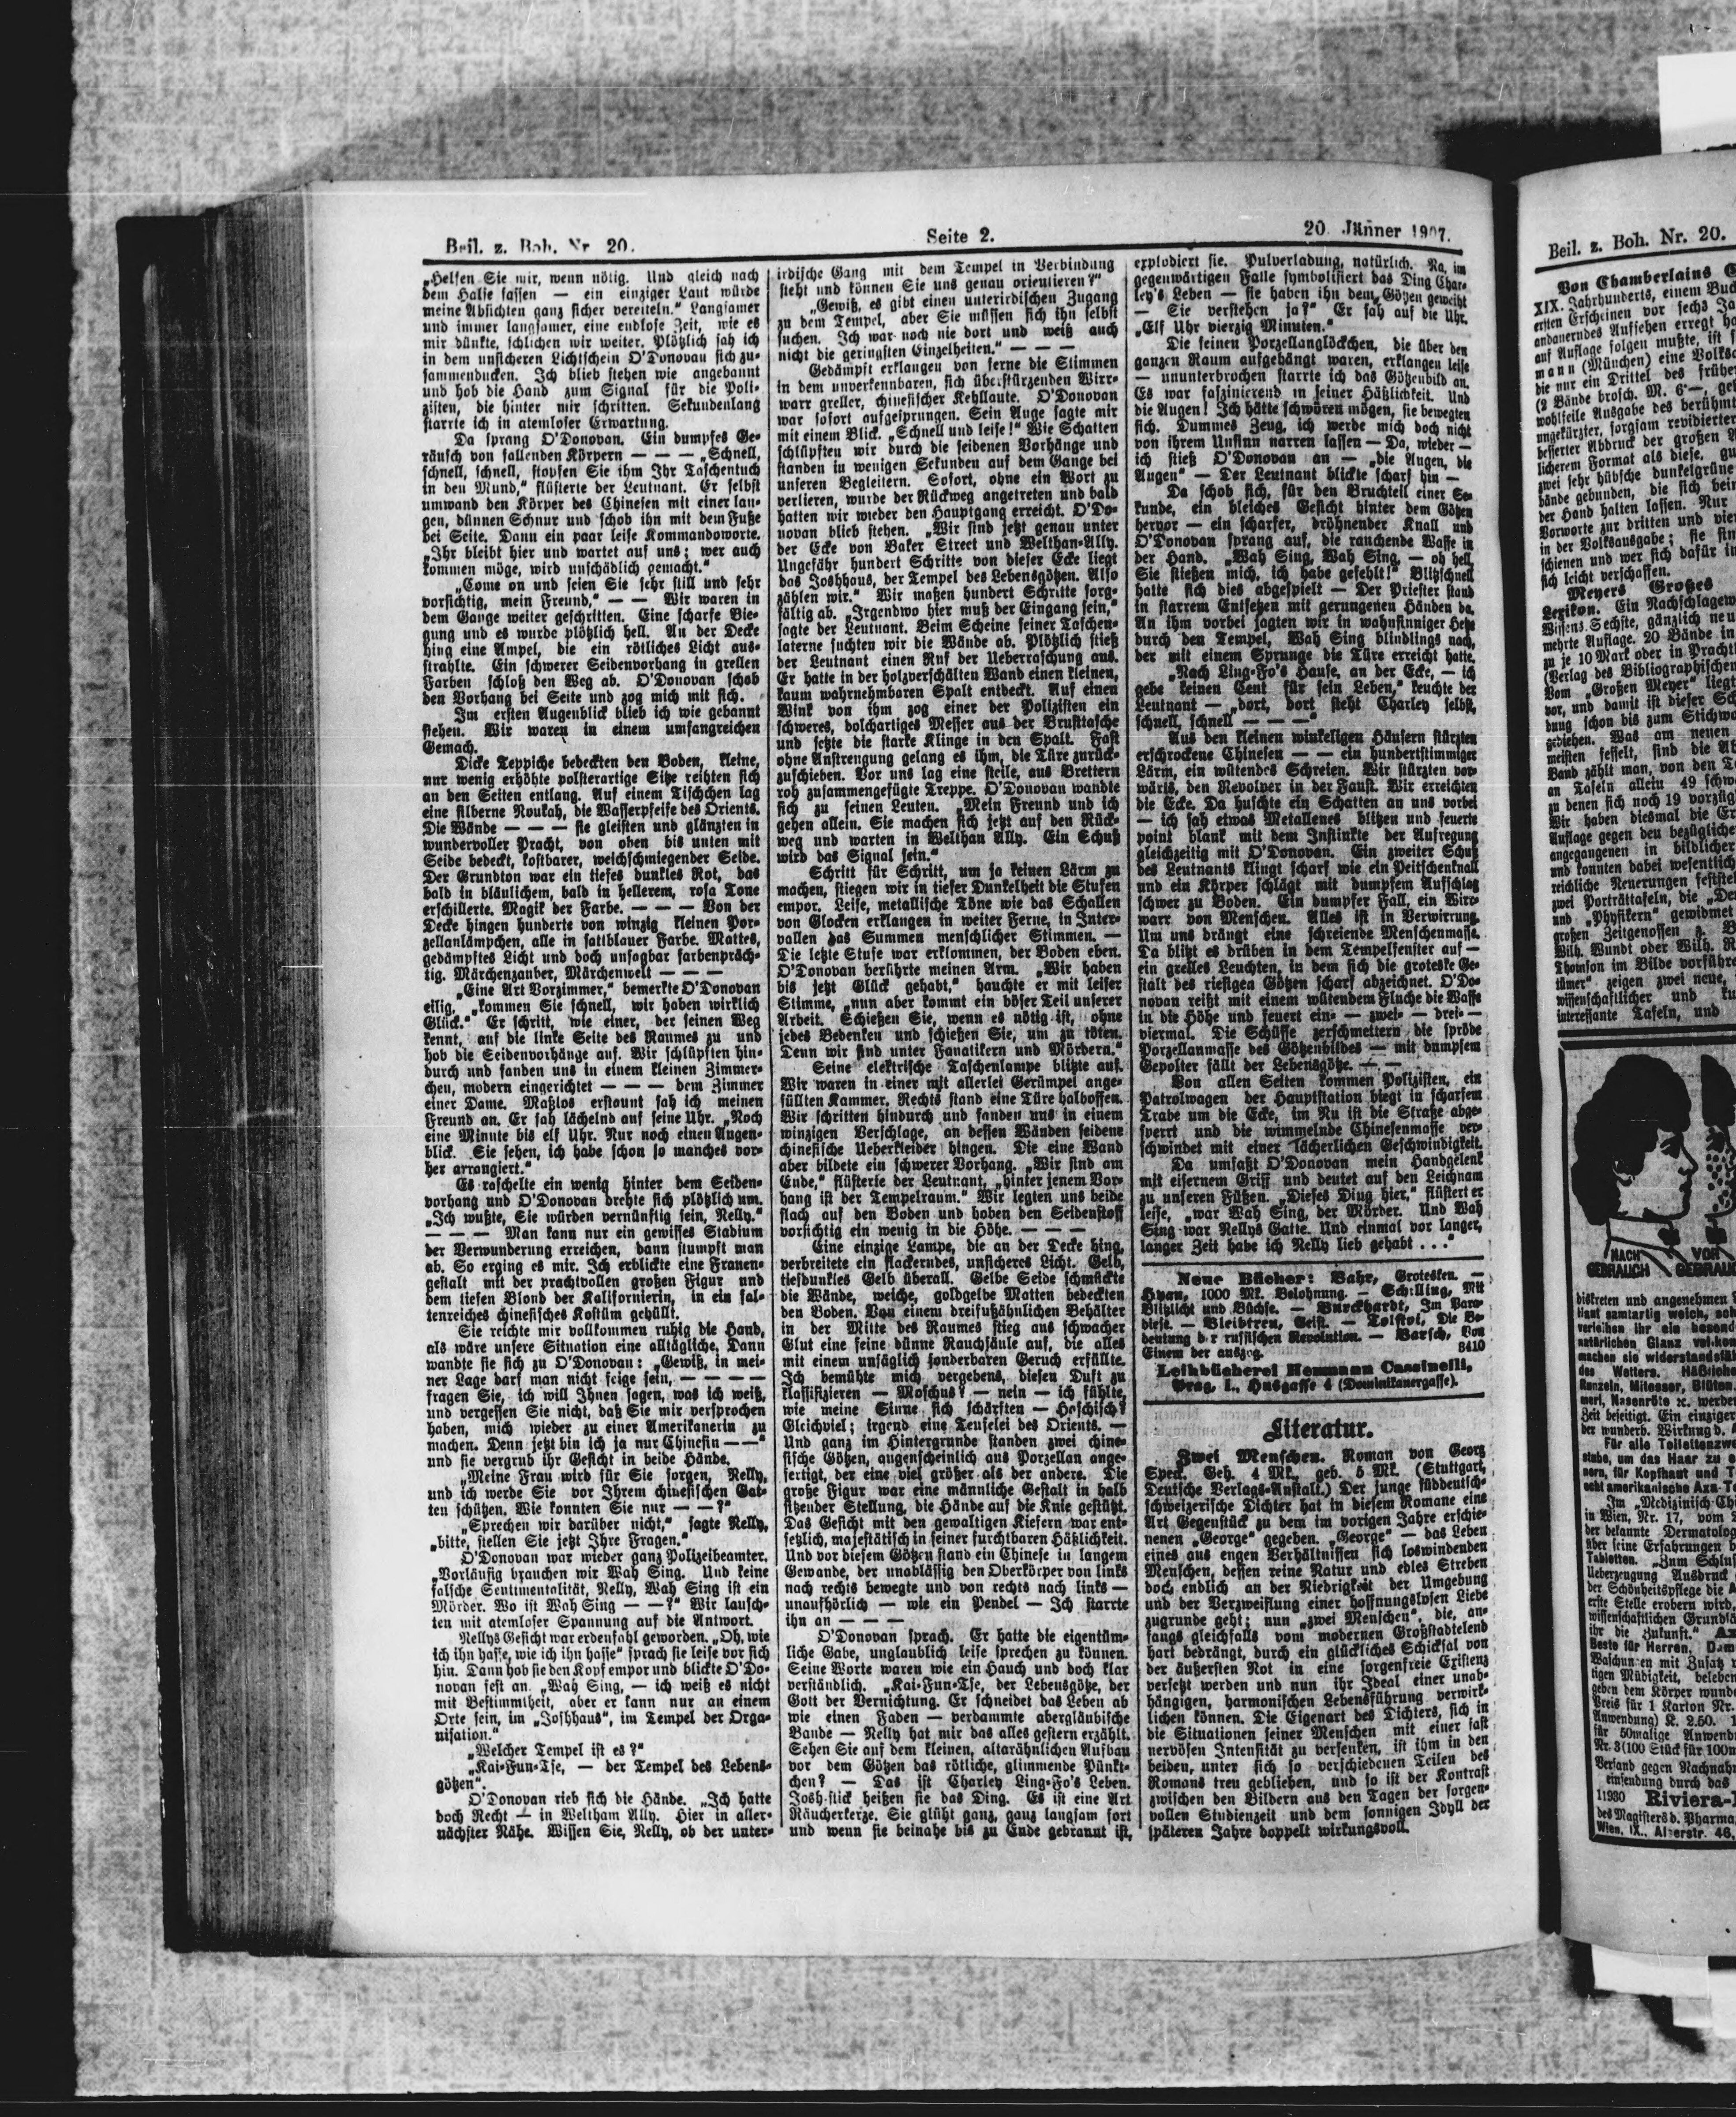 Beil. z. Boh. Nr. 20.
Seite 2.
20. Jänner 1907.
„Helfen Sie mir, wenn nötig. Und gleich nach
dem Halse fassen — ein einziger Laut würde
meine Absichten ganz sicher vereiteln.“ Langsamer
und immer langsamer, eine endlose Zeit, wie es
mir dünkte, schlichen wir weiter. Plötzlich sah ich
in dem unsicheren Lichtschein O'Donovan sich zu-
sammenducken. Ich blieb stehen wie angebannt
und hob die Hand zum Signal für die Poli-
zisten, die hinter mir schritten. Sekundenlang
starrte ich in atemloser Erwartung.
Da sprang O'Donovan. Ein dumpfes Ge-
räusch von fallenden Körpern — — — „Schnell,
schnell, schnell, stopfen Sie ihm Ihr Taschentuch
in den Mund,“ flüsterte der Leutnant. Er selbst
umwand den Körper des Chinesen mit einer lan-
gen, dünnen Schnur und schob ihn mit dem Fuße
bei Seite. Dann ein paar leise Kommandoworte.
„Ihr bleibt hier und wartet auf uns; wer auch
kommen möge, wird unschädlich gemacht.“
„Come on und seien Sie sehr still und sehr
vorsichtig, mein Freund,“ — — Wir waren in
dem Gange weiter geschritten. Eine scharfe Bie-
gung und es wurde plötzlich hell. An der Decke
hing eine Ampel, die ein rötliches Licht aus-
strahlte. Ein schwerer Seidenvorhang in grellen
Farben schloß den Weg ab. O'Donovan schob
den Vorhang bei Seite und zog mich mit sich.
Im ersten Augenblick blieb ich wie gebannt
stehen. Wir waren in einem umfangreichen
Gemach.
Dicke Teppiche bedeckten den Boden, kleine,
nur wenig erhöhte polsterartige Sitze reihten sich
an den Seiten entlang. Auf einem Tischchen lag
eine silberne Noukah, die Wasserpfeife des Orients.
Die Wände — — — sie gleisten und glänzten in
wundervoller Pracht, von oben bis unten mit
Seide bedeckt, kostbarer, weichschmiegender Seide.
Der Grundton war ein tiefes dunkles Rot, das
bald in bläulichem, bald in hellerem, rosa Tone
erschillerte. Magik der Farbe. — — — Von der
Decke hingen hunderte von winzig kleinen Por-
zellanlämpchen, alle in satiblauer Farbe. Mattes,
gedämpftes Licht und doch unsagbar farbenpräch-
tig. Märchenzauber, Märchenwelt — — —
„Eine Art Vorzimmer,“ bemerkte O'Donovan
eilig, „kommen Sie schnell, wir haben wirklich
Glück.“ Er schritt, wie einer, der seinen Weg
kennt, auf die linke Seite des Raumes zu und
hob die Seidenvorhänge auf. Wir schlüpften hin-
durch und fanden uns in einem kleinen Zimmer-
chen, modern eingerichtet — — — dem Zimmer
einer Dame. Maßlos erstaunt sah ich meinen
Freund an. Er sah lächelnd auf seine Uhr. „Noch
eine Minute bis elf Uhr. Nur noch einen Augen-
blick. Sie sehen, ich habe schon so manches vor-
her arrangiert.“
Es raschelte ein wenig hinter dem Seiden-
vorhang und O'Donovan drehte sich plötzlich um.
„Ich wußte, Sie würden vernünftig sein, Nelly.“
— — — Man kann nur ein gewisses Stadium
der Verwunderung erreichen, dann stumpft man
ab. So erging es mir. Ich erblickte eine Frauen-
gestalt mit der prachtvollen großen Figur und
dem tiefen Blond der Kalifornierin, in ein fal-
tenreiches chinesisches Kostüm gehüllt.
Sie reichte mir vollkommen ruhig die Hand,
als wäre unsere Situation eine alltägliche. Dann
wandte sie sich zu O'Donovan: „Gewiß, in mei-
ner Lage darf man nicht feige sein, — — — —
fragen Sie, ich will Ihnen sagen, was ich weiß,
und vergessen Sie nicht, daß Sie mir versprochen
haben, mich wieder zu einer Amerikanerin zu
machen. Denn jetzt bin ich ja nur Chinesin — —“
und sie vergrub ihr Gesicht in beide Hände.
„Meine Frau wird für Sie sorgen, Nelly,
und ich werde Sie vor Ihrem chinesischen Gat-
ten schützen. Wie konnten Sie nur — —?“
„Sprechen wir darüber nicht,“ sagte Nelly,
„bitte, stellen Sie jetzt Ihre Fragen.“
O'Donovan war wieder ganz Polizeibeamter.
„Vorläufig brauchen wir Wah Sing. Und keine
falsche Sentimentalität, Nelly, Wah Sing ist ein
Mörder. Wo ist Wah Sing — —?“ Wir lausch-
ten mit atemloser Spannung auf die Antwort.
Nellys Gesicht war erdenfahl geworden. „Oh, wie
ich ihn hasse, wie ich ihn hasse“ sprach sie leise vor sich
hin. Dann hob sie den Kopf empor und blickte O'Do-
novan fest an. „Wah Sing, — ich weiß es nicht
mit Bestimmtheit, aber er kann nur an einem
Orte sein, im „Joshhaus“, im Tempel der Orga-
nisation.“
„Welcher Tempel ist es?“
„Kai-Fun-Tse, — der Tempel des Lebens-
götzen“.
O'Donovan rieb sich die Hände. „Ich hatte
doch Recht — in Weltham Ally. Hier in aller-
nächster Nähe. Wissen Sie, Nelly, ob der unter-
irdische Gang mit dem Tempel in Verbindung
steht und können Sie uns genau orientieren?“
„Gewiß, es gibt einen unterirdischen Zugang
zu dem Tempel, aber Sie müssen sich ihn selbst
suchen. Ich war noch nie dort und weiß auch
nicht die geringsten Einzelheiten.“ — — —
Gedämpft erklangen von ferne die Stimmen
in dem unverkennbaren, sich überstürzenden Wirr-
warr greller, chinesischer Kehllaute. O'Donovan
war sofort aufgesprungen. Sein Auge sagte mir
mit einem Blick. „Schnell und leise!“ Wie Schatten
schlüpften wir durch die seidenen Vorhänge und
standen in wenigen Sekunden auf dem Gange bei
unseren Begleitern. Sofort, ohne ein Wort zu
verlieren, wurde der Rückweg angetreten und bald
hatten wir wieder den Hauptgang erreicht. O'Do-
novan blieb stehen. „Wir sind jetzt genau unter
der Ecke von Baker Street und Welthan-Ally.
Ungefähr hundert Schritte von dieser Ecke liegt
das Joshhaus, der Tempel des Lebensgötzen. Also
zählen wir.“ Wir maßen hundert Schritte sorg-
fältig ab. „Irgendwo hier muß der Eingang sein,“
sagte der Leutnant. Beim Scheine seiner Taschen-
laterne suchten wir die Wände ab. Plötzlich stieß
der Leutnant einen Ruf der Ueberraschung aus.
Er hatte in der holzverschälten Wand einen kleinen,
kaum wahrnehmbaren Spalt entdeckt. Auf einen
Wink von ihm zog einer der Polizisten ein
schweres, dolchartiges Messer aus der Brusttasche
und setzte die starke Klinge in den Spalt. Fast
ohne Anstrengung gelang es ihm, die Türe zurück-
zuschieben. Vor uns lag eine steile, aus Brettern
roh zusammengefügte Treppe. O'Donovan wandte
sich zu seinen Leuten. „Mein Freund und ich
gehen allein. Sie machen sich jetzt auf den Rück-
weg und warten in Welthan Ally. Ein Schuß
wird das Signal sein.“
Schritt für Schritt, um ja keinen Lärm zu
machen, stiegen wir in tiefer Dunkelheit die Stufen
empor. Leise, metallische Töne wie das Schallen
von Glocken erklangen in weiter Ferne, in Inter-
vallen das Summen menschlicher Stimmen. —
Die letzte Stufe war erklommen, der Boden eben.
O'Donovan berührte meinen Arm. „Wir haben
bis jetzt Glück gehabt,“ hauchte er mit leiser
Stimme, „nun aber kommt ein böser Teil unserer
Arbeit. Schießen Sie, wenn es nötig ist, ohne
jedes Bedenken und schießen Sie, um zu töten.
Denn wir sind unter Fanatikern und Mördern.“
Seine elektrische Taschenlampe blitzte auf.
Wir waren in einer mit allerlei Gerümpel ange-
füllten Kammer. Rechts stand eine Türe halboffen.
Wir schritten hindurch und fanden uns in einem
winzigen Verschlage, an dessen Wänden seidene
chinesische Ueberkleider hingen. Die eine Wand
aber bildete ein schwerer Vorhang. „Wir sind am
Ende,“ flüsterte der Leutnant, „hinter jenem Vor-
hang ist der Tempelraum.“ Wir legten uns beide
flach auf den Boden und hoben den Seidenstoff
vorsichtig ein wenig in die Höhe. — — —
Eine einzige Lampe, die an der Decke hing,
verbreitete ein flackerndes, unsicheres Licht. Gelb,
tiefdunkles Gelb überall. Gelbe Seide schmückte
die Wände, weiche, goldgelbe Matten bedeckten
den Boden. Von einem dreifußähnlichen Behälter
in der Mitte des Raumes stieg aus schwacher
Glut eine feine dünne Rauchsäule auf, die alles
mit einem unsäglich sonderbaren Geruch erfüllte.
Ich bemühte mich vergebens, diesen Duft zu
klassifizieren — Moschus? — nein — ich fühlte,
wie meine Sinne sich schärften — Haschisch?
Gleichviel; irgend eine Teufelei des Orients. —
Und ganz im Hintergrunde standen zwei chine-
sische Götzen, augenscheinlich aus Porzellan ange-
fertigt, der eine viel größer als der andere. Die
große Figur war eine männliche Gestalt in halb
sitzender Stellung, die Hände auf die Knie gestützt.
Das Gesicht mit den gewaltigen Kiefern war ent-
setzlich, majestätisch in seiner furchtbaren Häßlichkeit.
Und vor diesem Götzen stand ein Chinese in langem
Gewande, der unablässig den Oberkörper von links
nach rechts bewegte und von rechts nach links —
unaufhörlich — wie ein Pendel — Ich starrte
ihn an — — —
O'Donovan sprach. Er hatte die eigentüm-
liche Gabe, unglaublich leise sprechen zu können.
Seine Worte waren wie ein Hauch und doch klar
verständlich. „Kai-Fun-Tse, der Lebensgötze, der
Gott der Vernichtung. Er schneidet das Leben ab
wie einen Faden — verdammte abergläubische
Bande — Nelly hat mir das alles gestern erzählt.
Sehen Sie auf dem kleinen, altarähnlichen Aufbau
vor dem Götzen das rötliche, glimmende Pünkt-
chen? — Das ist Charley Ling-Fo's Leben.
Josh-stick heißen sie das Ding. Es ist eine Art
Räucherkerze. Sie glüht ganz, ganz langsam fort
und wenn sie beinahe bis zu Ende gebrannt ist,
explodiert sie. Pulverladung, natürlich. Na, im
gegenwärtigen Falle symbolisiert das Ding Char-
ley's Leben — sie haben ihn dem Götzen geweiht
— Sie verstehen ja?“ Er sah auf die Uhr.
„Elf Uhr vierzig Minuten.“
Die feinen Porzellanglöckchen, die über den
ganzen Raum aufgehängt waren, erklangen leise
— ununterbrochen starrte ich das Götzenbild an.
Es war faszinierend in seiner Häßlichkeit. Und
die Augen! Ich hätte schwören mögen, sie bewegten
sich. Dummes Zeug, ich werde mich doch nicht
von ihrem Unsinn narren lassen — Da, wieder —
ich stieß O'Donovan an — „die Augen, die
Augen“ — Der Leutnant blickte scharf hin —
Da schob sich, für den Bruchteil einer Se-
kunde, ein bleiches Gesicht hinter dem Götzen
hervor — ein scharfer, dröhnender Knall und
O'Donovan sprang auf, die rauchende Waffe in
der Hand. „Wah Sing, Wah Sing, — oh hell,
Sie stießen mich, ich habe gefehlt!“ Blitzschnell
hatte sich dies abgespielt — Der Priester stand
in starrem Entsetzen mit gerungenen Händen da.
An ihm vorbei jagten wir in wahnsinniger Hetze
durch den Tempel, Wah Sing blindlings nach,
der mit einem Sprunge die Türe erreicht hatte.
„Nach Ling-Fo's Hause, an der Ecke, — ich
gebe keinen Cent für sein Leben,“ keuchte der
Leutnant — „dort, dort steht Charley selbst,
schnell, schnell — — —“
Aus den kleinen winkeligen Häusern stürzten
erschrockene Chinesen — — ein hundertstimmiger
Lärm, ein wütendes Schreien. Wir stürzten vor-
wärts, den Revolver in der Faust. Wir erreichten
die Ecke. Da huschte ein Schatten an uns vorbei
— ich sah etwas Metallenes blitzen und feuerte
point blank mit dem Instinkte der Aufregung
gleichzeitig mit O'Donovan. Ein zweiter Schuß
des Leutnants klingt scharf wie ein Peitschenknall
und ein Körper schlägt mit dumpfem Aufschlag
schwer zu Boden. Ein dumpfer Fall, ein Wirr-
warr von Menschen. Alles ist in Verwirrung.
Um uns drängt eine schreiende Menschenmasse.
Da blitzt es drüben in dem Tempelfenster auf —
ein grelles Leuchten, in dem sich die groteske Ge-
stalt des riesigen Götzen scharf abzeichnet. O'Do-
novan reißt mit einem wütendem Fluche die Waffe
in die Höhe und feuert ein- — zwei- — drei- —
viermal. Die Schüsse zerschmettern die spröde
Porzellanmasse des Götzenbildes — mit dumpfem
Gepolter fällt der Lebensgötze. — —
Von allen Seiten kommen Polizisten, ein
Patrolwagen der Hauptstation biegt in scharfem
Trabe um die Ecke, im Nu ist die Straße abge-
sperrt und die wimmelnde Chinesenmasse ver-
schwindet mit einer lächerlichen Geschwindigkeit.
Da umfaßt O'Donovan mein Handgelenk
mit eisernem Griff und deutet auf den Leichnam
zu unseren Füßen. „Dieses Ding hier,“ flüstert er
leise, „war Wah Sing, der Mörder. Und Wah
Sing war Nellys Gatte. Und einmal vor langer,
langer Zeit habe ich Nelly lieb gehabt . . .“
Neue Bücher: Bahr, Grotesken. —
Hyan, 1000 Mk. Belohnung. — Schilling, Mit
Blitzlicht und Büchse. — Burckhardt, Im Para-
diese. — Bleibtreu, Geist. — Tolstoi, Die Be-
deutung der russischen Revolution. — Barsch, Von
Einem der auszog. 8410
Leihbücherei Hermann Cassinelli,
Prag, I., Husgasse 4 (Dominikanergasse).
Literatur.
Zwei Menschen. Roman von Georg
Speck. Geh. 4 Mk., geb. 5 Mk. (Stuttgart,
Deutsche Verlags-Anstalt.) Der junge süddeutsch-
schweizerische Dichter hat in diesem Romane eine
Art Gegenstück zu dem im vorigen Jahre erschie-
nenen „George“ gegeben. „George“ — das Leben
eines aus engen Verhältnissen sich loswindenden
Menschen, dessen reine Natur und edles Streben
doch endlich an der Niedrigkeit der Umgebung
und der Verzweiflung einer hoffnungslosen Liebe
zugrunde geht; nun „zwei Menschen“, die, an-
fangs gleichfalls vom modernen Großstadtelend
hart bedrängt, durch ein glückliches Schicksal von
der äußersten Not in eine sorgenfreie Existenz
versetzt werden und nun ihr Ideal einer unab-
hängigen, harmonischen Lebensführung verwirk-
lichen können. Die Eigenart des Dichters, sich in
die Situationen seiner Menschen mit einer fast
nervösen Intensität zu versenken, ist ihm in den
beiden, unter sich so verschiedenen Teilen des
Romans treu geblieben, und so ist der Kontrast
zwischen den Bildern aus den Tagen der sorgen-
vollen Studienzeit und dem sonnigen Idyll der
späteren Jahre doppelt wirkungsvoll.
Beil. z. Boh. Nr. 20.
Von Chamberlains
XIX. Jahrhunderts, einem Buch
ersten Erscheinen vor sechs
andauerndes Aufsehen erregt
auf Auflage folgen mußte, ist
mann (München) eine
die nur ein Drittel des
(2 Bände brosch. M. 6·—,
wohlfeile Ausgabe des
ungekürzter, sorgsam revidierter
besserter Abdruck der großen
licherem Format als diese,
zwei sehr hübsche dunkelgrüne
bände gebunden, die sich
der Hand halten lassen. Nur
Vorworte zur dritten und
in der Volksausgabe; sie
schienen und wer sich dafür
sich leicht verschaffen.
Meyers Großes
Lexikon. Ein Nachschlagewerk
Wissens. Sechste, gänzlich
mehrte Auflage. 20 Bände in
zu je 10 Mark oder in
(Verlag des Bibliographischen
Vom „Großen Meyer“ liegt
vor, und damit ist dieser
dung schon bis zum
gediehen. Was am neuen
meisten fesselt, sind die
Band zählt man, von den
an Tafeln allein 49
zu denen sich noch 19
Wir haben diesmal die
Auflage gegen den
angegangenen in bildlicher
und konnten dabei
reichliche Neuerungen
zwei Porträttafeln, die
und „Physikern“ gewidmet
großen Zeitgenossen z. B.
Wilh. Wundt oder Wilh.
Thomson im Bilde
tümer“ zeigen zwei neue,
wissenschaftlicher und
interessante Tafeln, und
NACH
GEBRAUCH
VOR
GEBRAUCH
diskreten und angenehmen
Haut samtartig weich,
verleihen ihr ein
natürlichen Glanz
machen sie
des Wetters.
Runzeln, Mitesser, Blüten,
Nasenröte ꝛc. werden
Zeit beseitigt. Ein einziger
der wunderb. Wirkung
Für alle
um das Haar zu
für Kopfhaut und
echt amerikanische Axa-
Im „Medizinisch-
in Wien, Nr. 17, vom
der bekannte
über seine Erfahrungen
Tabletten. „Zum
Ueberzeugung Ausdruck
der Schönheitspflege die
erste Stelle erobern wird,
wissenschaftlichen
ihr die Zukunft.“
Beste für Herren,
Waschungen mit Zusatz
tigen Müdigkeit,
geben dem Körper
Preis für 1 Karton Nr.
Anwendung) K. 2.50.
für 50malige
Nr. 3 (100 Stück für
Versand gegen
einsendung durch das
11930 Riviera-
des Magisters d. Pharma.
Wien, IX., Alserstr. 46,